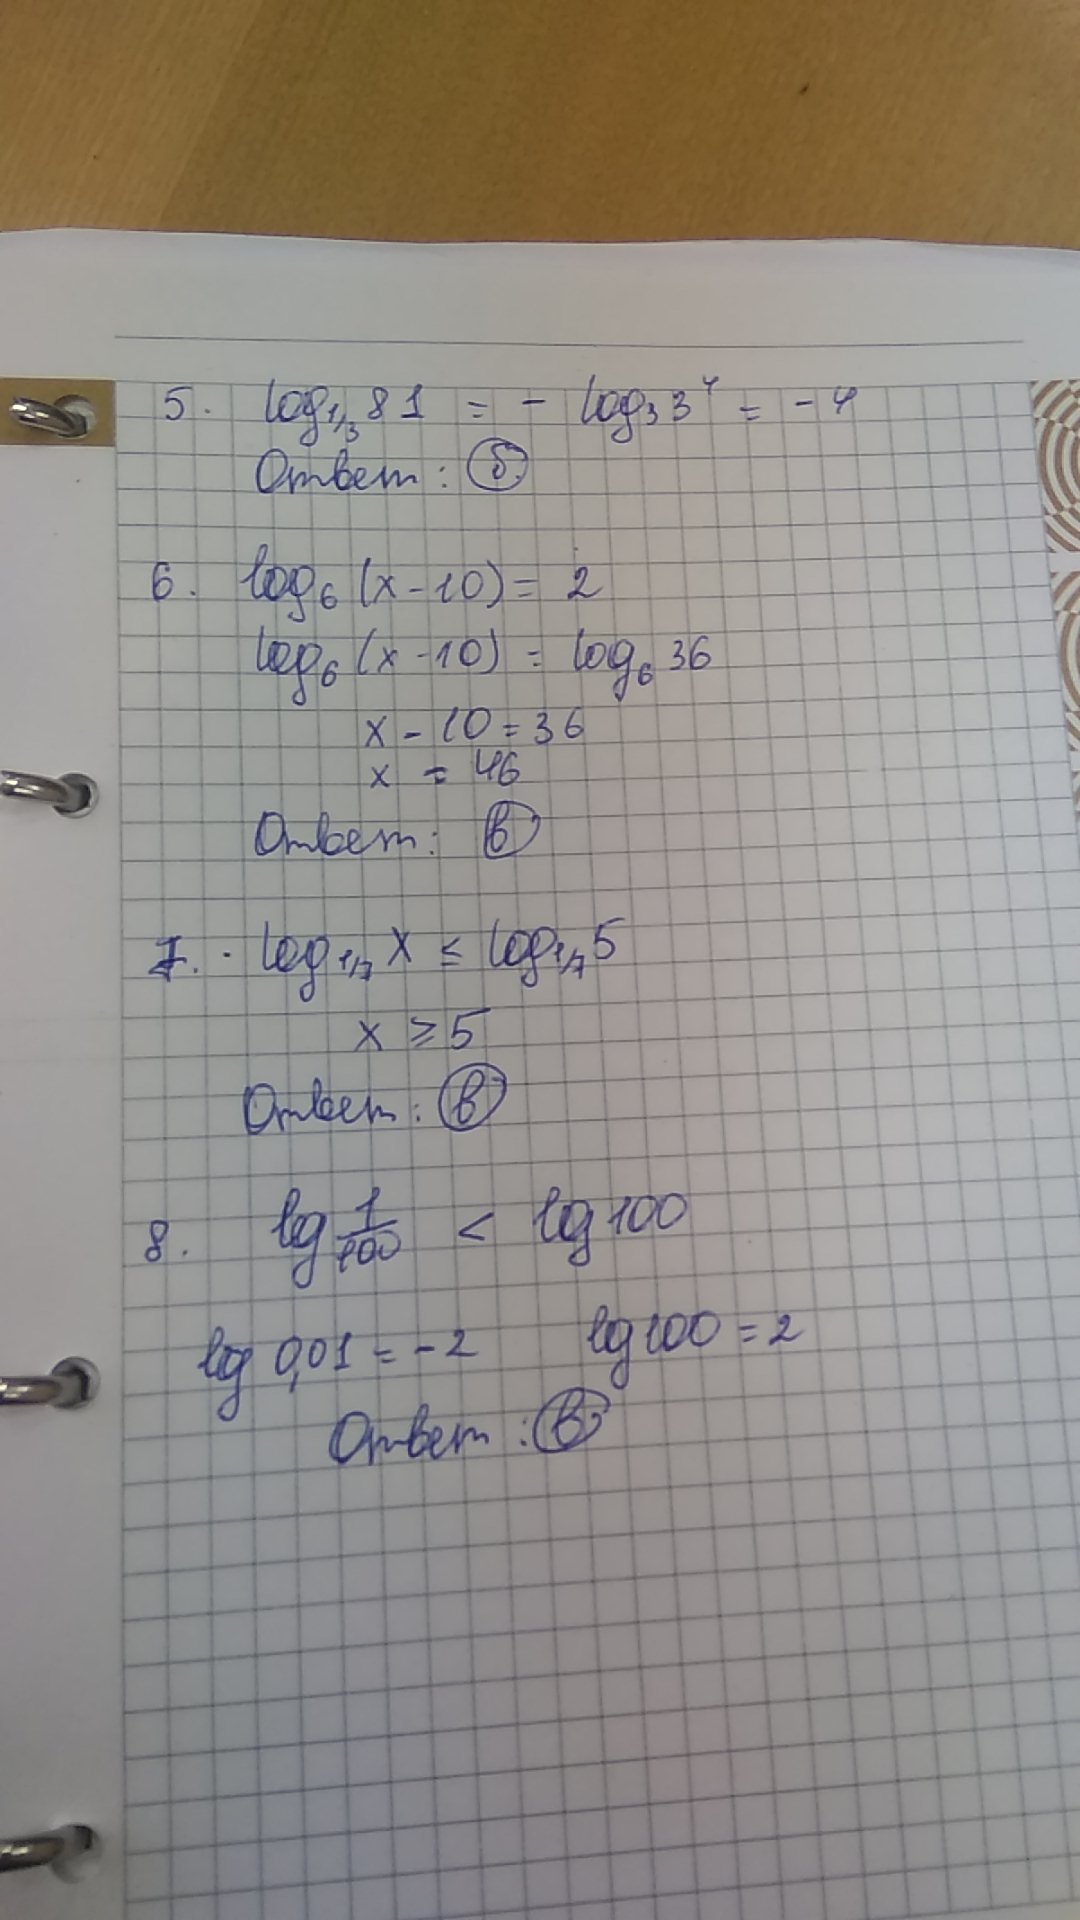 5. log₁/₃ 81 = - log₃ 3⁴ = -4
Ответ: б
6. log₆ (x-10) = 2
log₆ (x-10) = log₆ 36
x - 10 = 36
x = 46
Ответ: в
7. log₁/₇ x ≤ log₁/₇ 5
x ≥ 5
Ответ: в
8. lg 1/100 < lg 100
lg 0,01 = -2 lg 100 = 2
Ответ: в